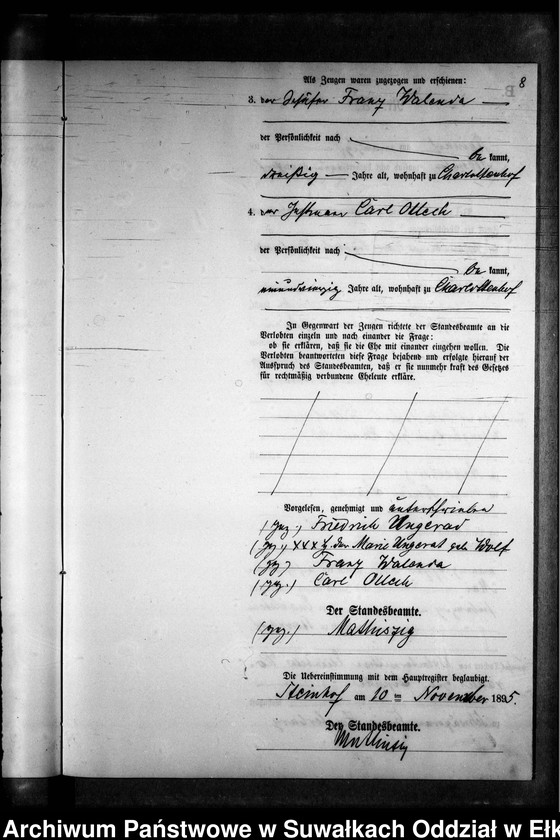 8
Als Zeugen waren zugezogen und erschienen:
3. der Franz Walenda
der Persönlichkeit nach
be kannt,
dreißig Jahre alt, wohnhaft zu Charlottenhof
4. der Instmann Carl Olleck
der Persönlichkeit nach
be kannt,
Jahre alt, wohnhaft zu Charlottenhof
In Gegenwart der Zeugen richtete der Standesbeamte an die
Verlobten einzeln und nach einander die Frage:
ob sie erklären, daß sie die Ehe mit einander eingehen wollen. Die
Verlobten beantworteten diese Frage bejahend und erfolgte hierauf der
Ausspruch des Standesbeamten, daß er sie nunmehr kraft des Gesetzes
für rechtmäßig verbundene Eheleute erkläre.
Vorgelesen, genehmigt und unterschrieben
(gez.) Friedrich Ungerad
(gez.) XXX der Marie Ungerat geb. Wolf
(gez.) Franz Walenda
(gez.) Carl Olleck
Der Standesbeamte.
(gez.) Mathiszig
Die Uebereinstimmung mit dem Hauptregister beglaubigt.
Steinhof am 10 ten November 1895.
Der Standesbeamte.
Archiwum Państwowe w Suwałkach Oddział w Ełk